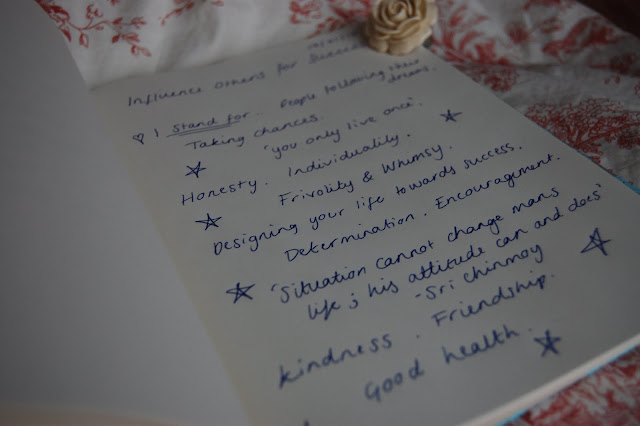 Influence others for success
♡ I Stand for. People following their dreams.
Taking chances. 'you only live once'.
Honesty. Individuality.
Frivolity & Whimsy.
Designing your life towards success.
Determination. Encouragement.
'Situation cannot change mans
life; his attitude can and does'
- Sri Chinmoy
kindness. Friendship.
Good health.